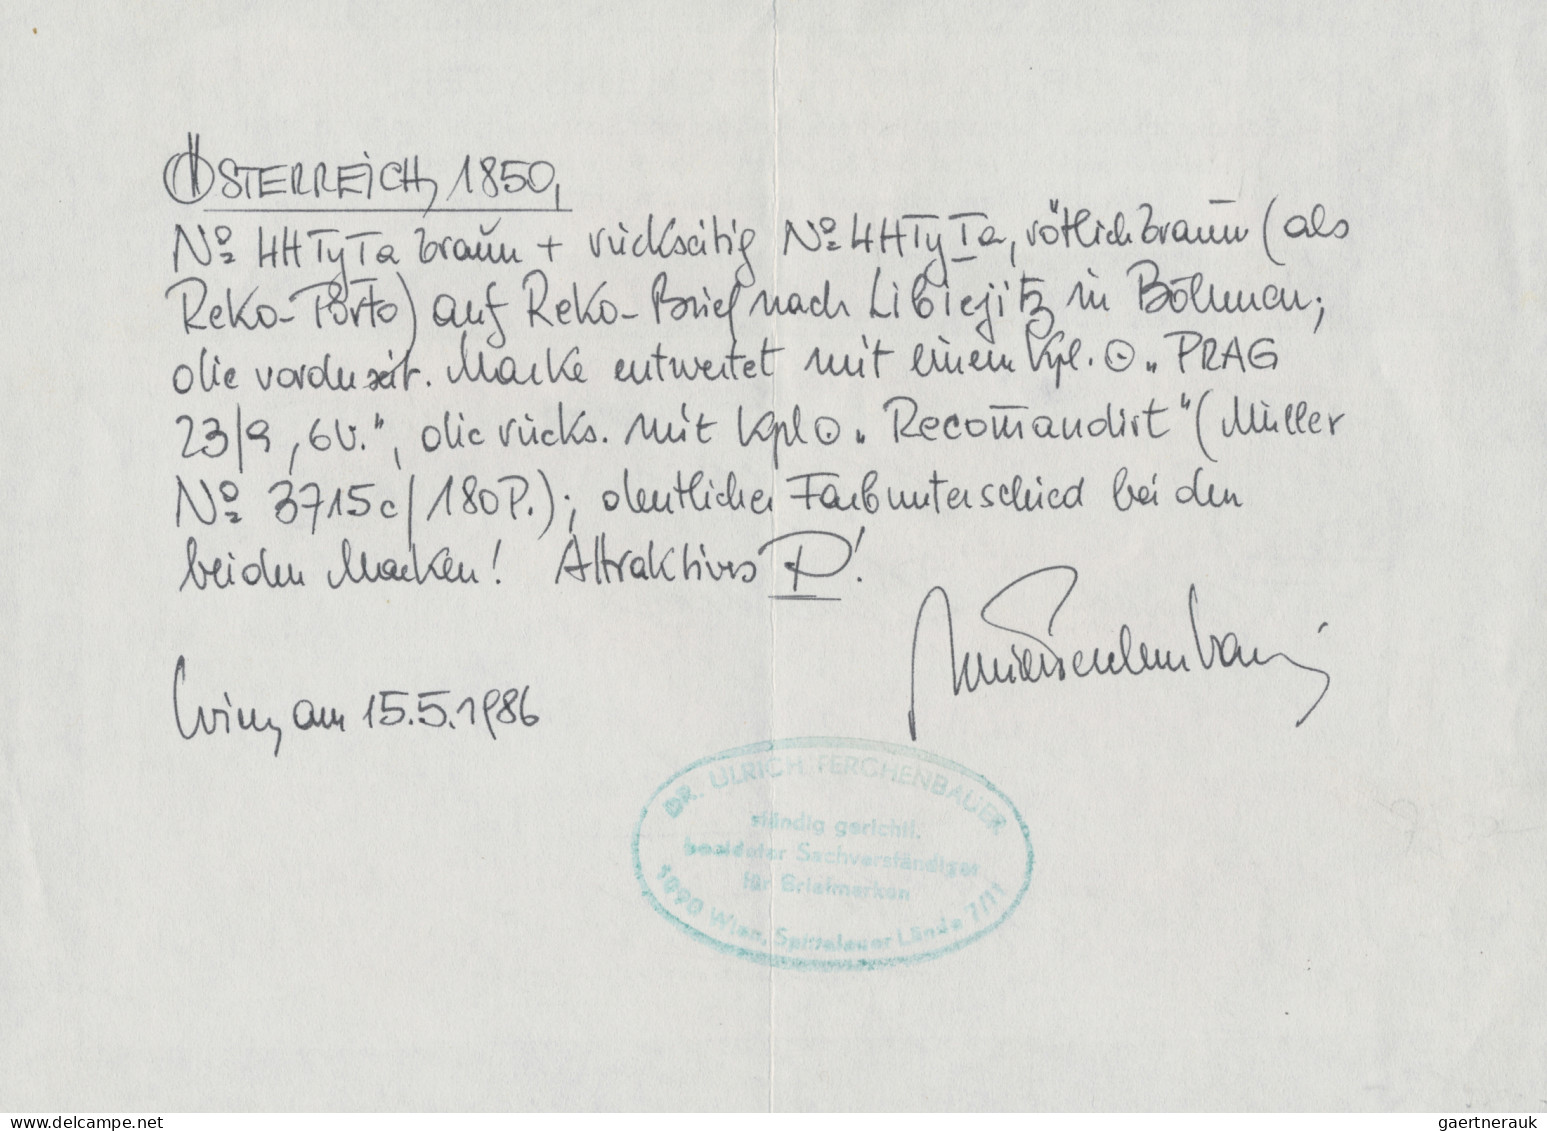 ÖSTERREICH, 1850,
No 4HTyTa braun + rückseitig No 4HTyIa, rötlichbraun (als
Reko-Porto) auf Reko-Brief nach Libiejitz in Böhmen;
die vorderseit. Marke entwertet mit einem Kpl. ⊙ „PRAG
23/9, 6U.", die rücks. mit kpl ⊙ „Recomandirt" (Müller
No 3715c/180P.); deutlicher Farbunterschied bei den
beiden Marken! Attraktives P!
Wien, am 15.5.1986
DR. ULRICH FERCHENBAUER
ständig gerichtl.
beeideter Sachverständiger
für Briefmarken
1090 Wien, Spittelauer Lände 7/11
www.delcampe.net
gaertnerauk